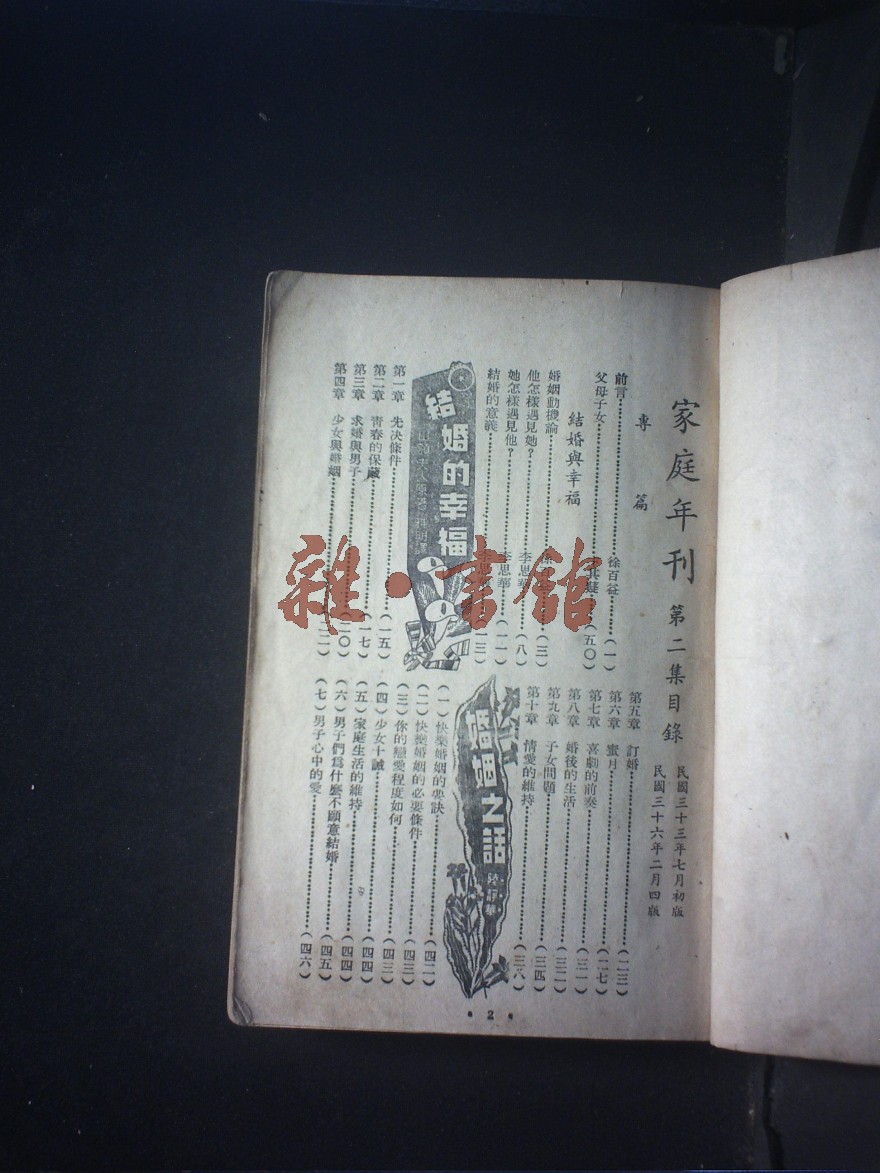 家庭年刊 第二集目錄
民國三十三年七月初版
民國三十六年二月四版
專篇
前言 徐百益 (一)
父母子女 (五〇)
結婚與幸福
婚姻動機論 (三)
他怎樣遇見她? 李思華 (八)
她怎樣遇見他? 李思華 (一一)
結婚的意義 (一三)
結婚的幸福
第一章 先決條件 (一五)
第二章 青春的保藏
第三章 求婚與男子 (一七)
第四章 少女與婚姻 (二〇)
第五章 訂婚 (二三)
第六章 蜜月 (二七)
第七章 喜劇的前奏 (三一)
第八章 婚後的生活 (三二)
第九章 子女問題 (三四)
第十章 情愛的維持 (三八)
婚姻之話
(一)快樂婚姻的要訣 (四二)
(二)快樂婚姻的必要條件 (四三)
(三)你的戀愛程度如何 (四三)
(四)少女十誡 (四四)
(五)家庭生活的維持 (四四)
(六)男子們爲什麼不願意結婚 (四五)
(七)男子心中的愛 (四六)
2
雜·書館